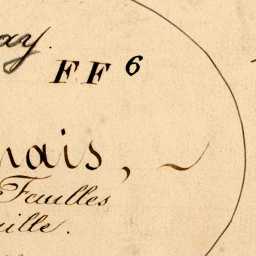 ay.
FF 6
nais,
Faulles
aille.